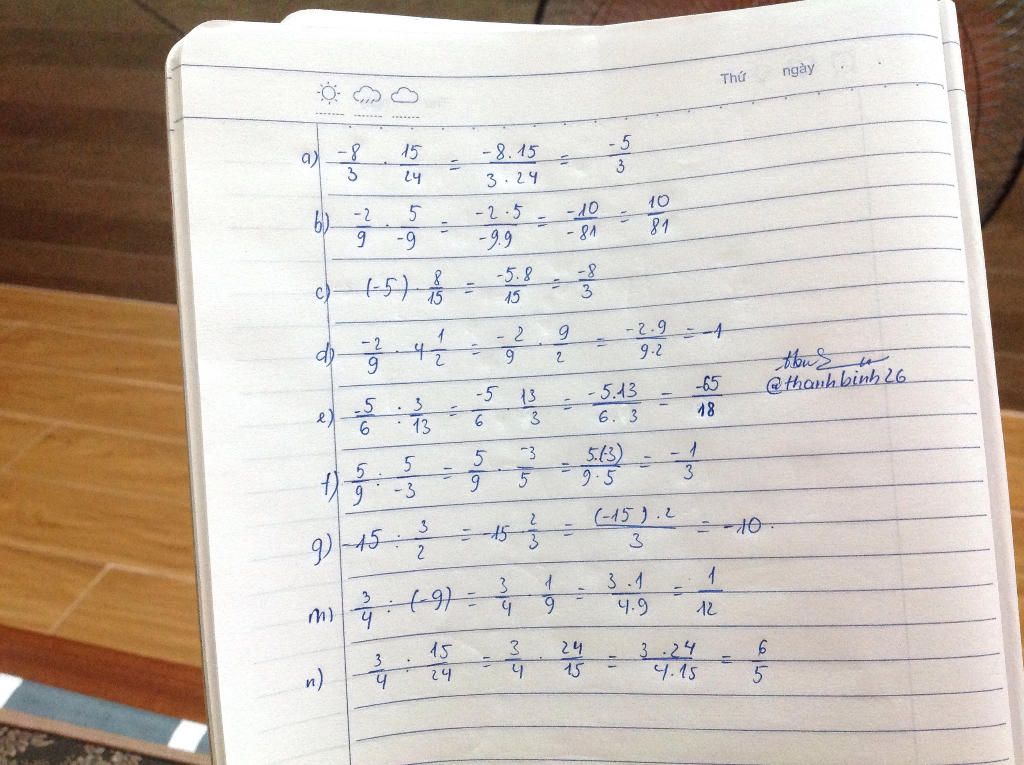 Thứ ngày
a) -8/3 . 15/24 = -8.15/3.24 = -5/3
b) -2/9 . 5/-9 = -2.5/-9.9 = -10/-81 = 10/81
c) (-5) . 8/15 = -5.8/15 = -8/3
d) -2/9 . 4 1/2 = -2/9 . 9/2 = -2.9/9.2 = -1
e) -5/6 : 3/13 = -5/6 . 13/3 = -5.13/6.3 = -65/18
@thanhbinh26
f) 5/9 : 5/-3 = 5/9 . -3/5 = 5.(-3)/9.5 = -1/3
g) -15 : 3/2 = -15 2/3 = (-15).2/3 = -10.
m) 3/4 : (-9) = 3/4 . 1/9 = 3.1/4.9 = 1/12
n) 3/4 : 15/24 = 3/4 . 24/15 = 3.24/4.15 = 6/5